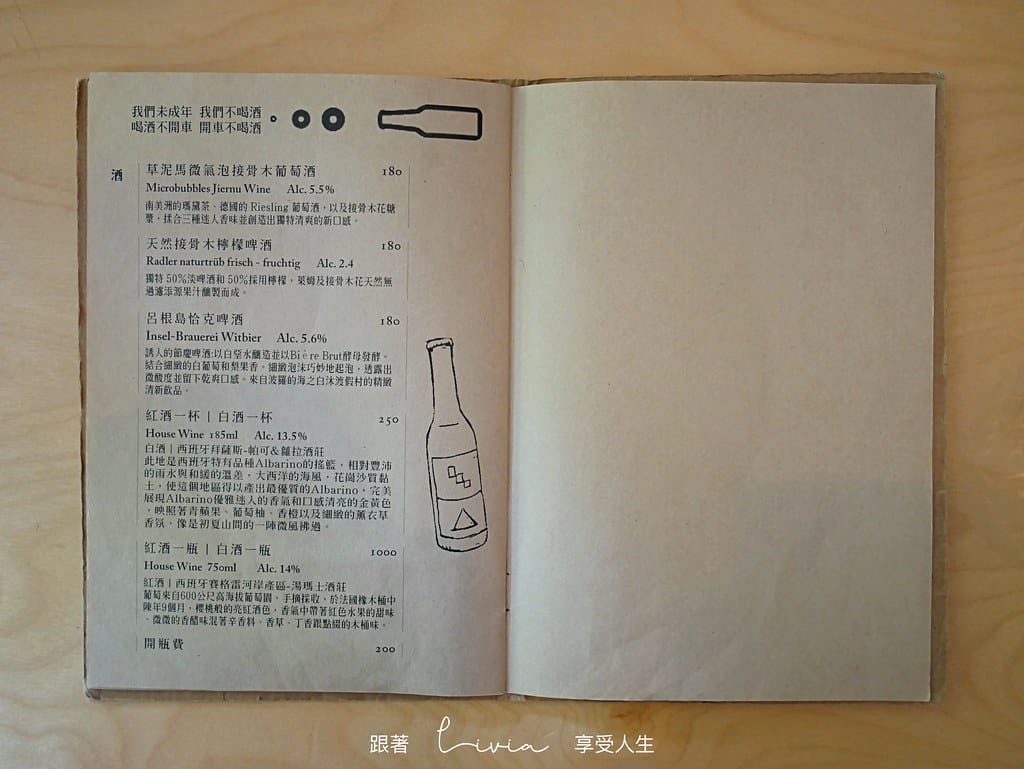 我們未成年 我們不喝酒
喝酒不開車 開車不喝酒
酒
草泥馬微氣泡接骨木葡萄酒 180
Microbubbles Jiernu Wine Alc. 5.5%
南美洲的瑪黛茶、德國的 Riesling 葡萄酒，以及接骨木花糖
漿，揉合三種迷人香味並創造出獨特清爽的新口感。
天然接骨木檸檬啤酒 180
Radler naturtrüb frisch - fruchtig Alc. 2.4
獨特 50%淡啤酒和 50%採用檸檬，萊姆及接骨木花天然無
過濾添源果汁釀製而成。
呂根島恰克啤酒 180
Insel-Brauerei Witbier Alc. 5.6%
誘人的節慶啤酒:以白堊水釀造並以Bière Brut酵母發酵。
結合細緻的白葡萄和梨果香。細緻泡沫巧妙地起泡，透露出
微酸度並留下乾爽口感。來自波羅的海之白沐渡假村的精緻
清新飲品。
紅酒一杯 | 白酒一杯 250
House Wine 185ml Alc. 13.5%
白酒 | 西班牙拜薩斯-帕可&蘿拉酒莊
此地是西班牙特有品種Albarino的搖籃，相對豐沛
的雨水與和緩的溫差，大西洋的海風，花崗沙質黏
土，使這個地區得以產出最優質的Albarino，完美
展現Albarino優雅迷人的香氣和口感清亮的金黃色
，映照著青蘋果、葡萄柚、香橙以及細緻的薰衣草
香氛，像是初夏山間的一陣微風拂過。
紅酒一瓶 | 白酒一瓶 1000
House Wine 750ml Alc. 14%
紅酒 | 西班牙賽格雷河岸產區-湯瑪士酒莊
葡萄來自600公尺高海拔葡萄園，手摘採收，於法國橡木桶中
陳年9個月，櫻桃般的亮紅酒色，香氣中帶著紅色水果的甜味
、微微的香醋味混著辛香料、香草、丁香跟點綴的木桶味。
開瓶費 200
跟著 Livia 享受人生